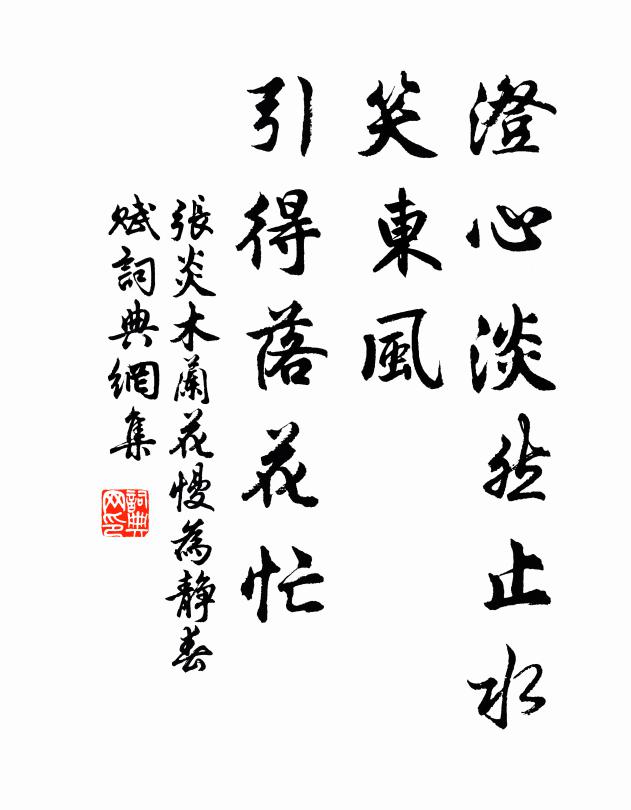 澄心淡然止水
笑東風
引得落花忙
張炎木蘭花慢為靜春
賦詞典網集
詞典
网印